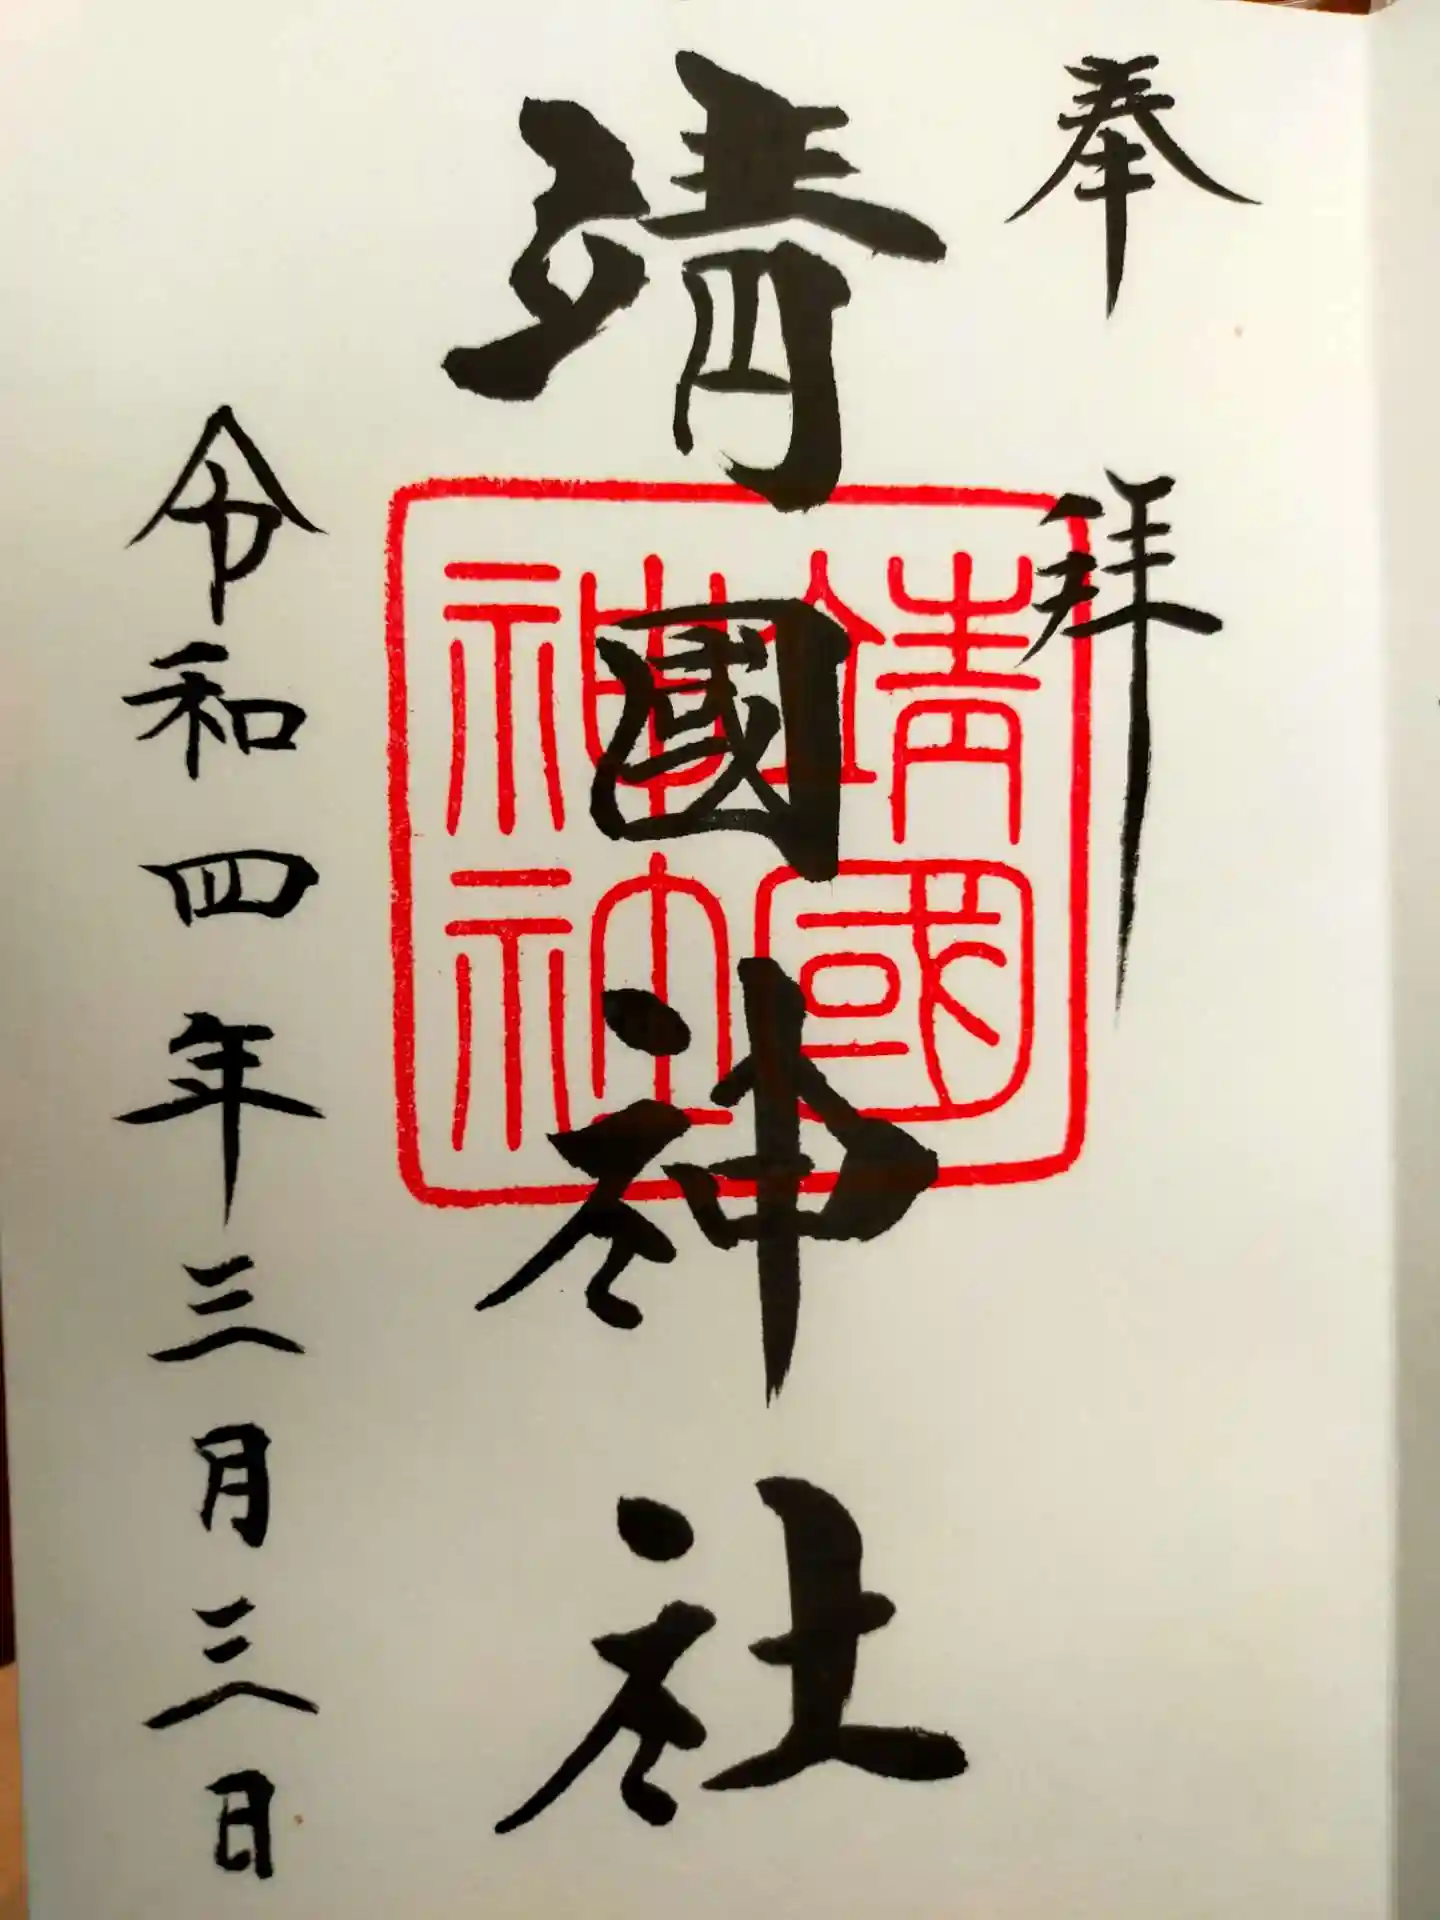 奉拝
靖國神社
靖國
神社
令和四年三月三日